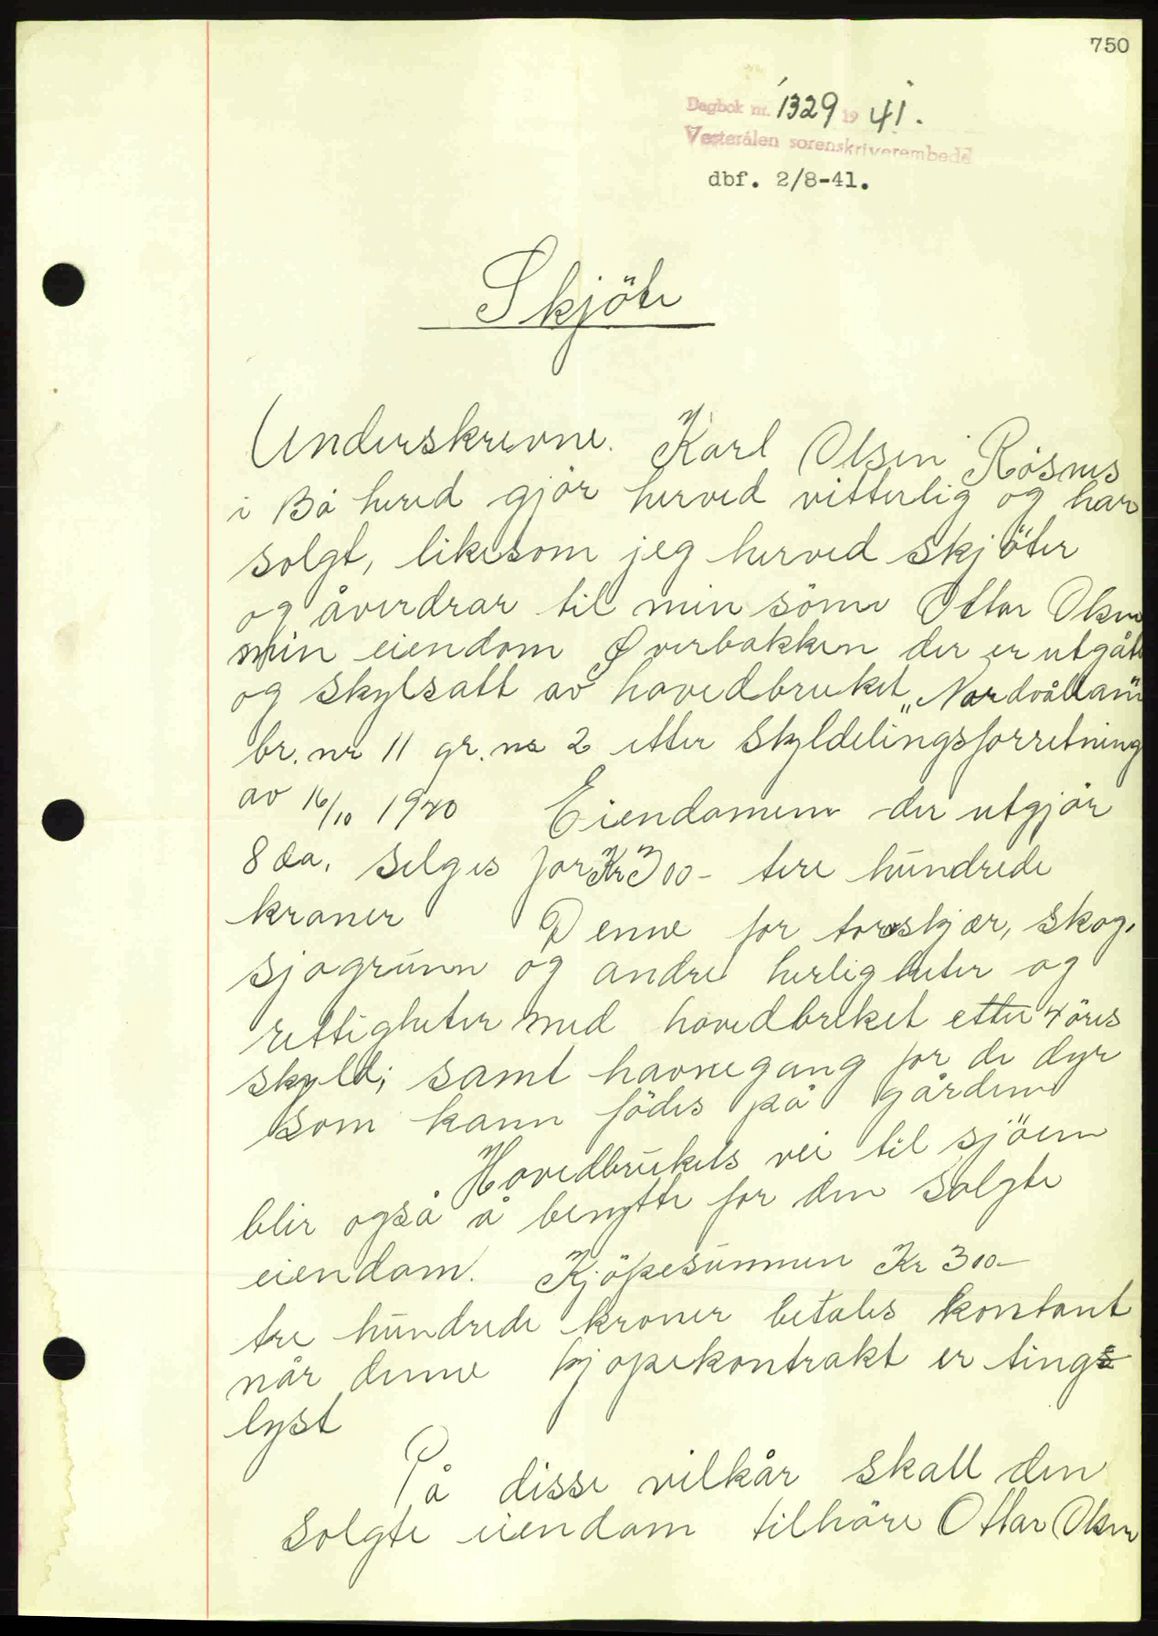 750
Dagbok nr. 1329 19 41.
Vesterålen sorenskriverembede
dbf. 2/8-41.
Skjöte
Underskrevne. Karl Olsen Røsnes
i Bø herred gjør herved vitterlig og har
solgt, likesom jeg herved skjöter
og åverdrar til min sönn Ottar Olsen
min eiendom Øverbakken der er utgått
og skylsatt av hovedbruket „Nordvållan"
br. nr 11 gr. nr 2 etter skyldelingsforretning
av 16/10 1940 Eiendomen der utgjör
8 da. selges for Kr 300- tre hundrede
kroner Denne for torvskjær, skog,
sjøgrunn og andre herligheter og
rettigheter med hovedbruket etter 4 öres
skyld; samt havnegang for de dyr
som kann födes på gården
Hovedbrukets vei til sjöen
blir også å benytte for den solgte
eiendom. Kjöpesummen Kr 300-
tre hundrede kroner betales kontant
når denne kjøpekontrakt er tings
lyst
På disse vilkår skall den
solgte eiendom tilhöre Ottar Olsen